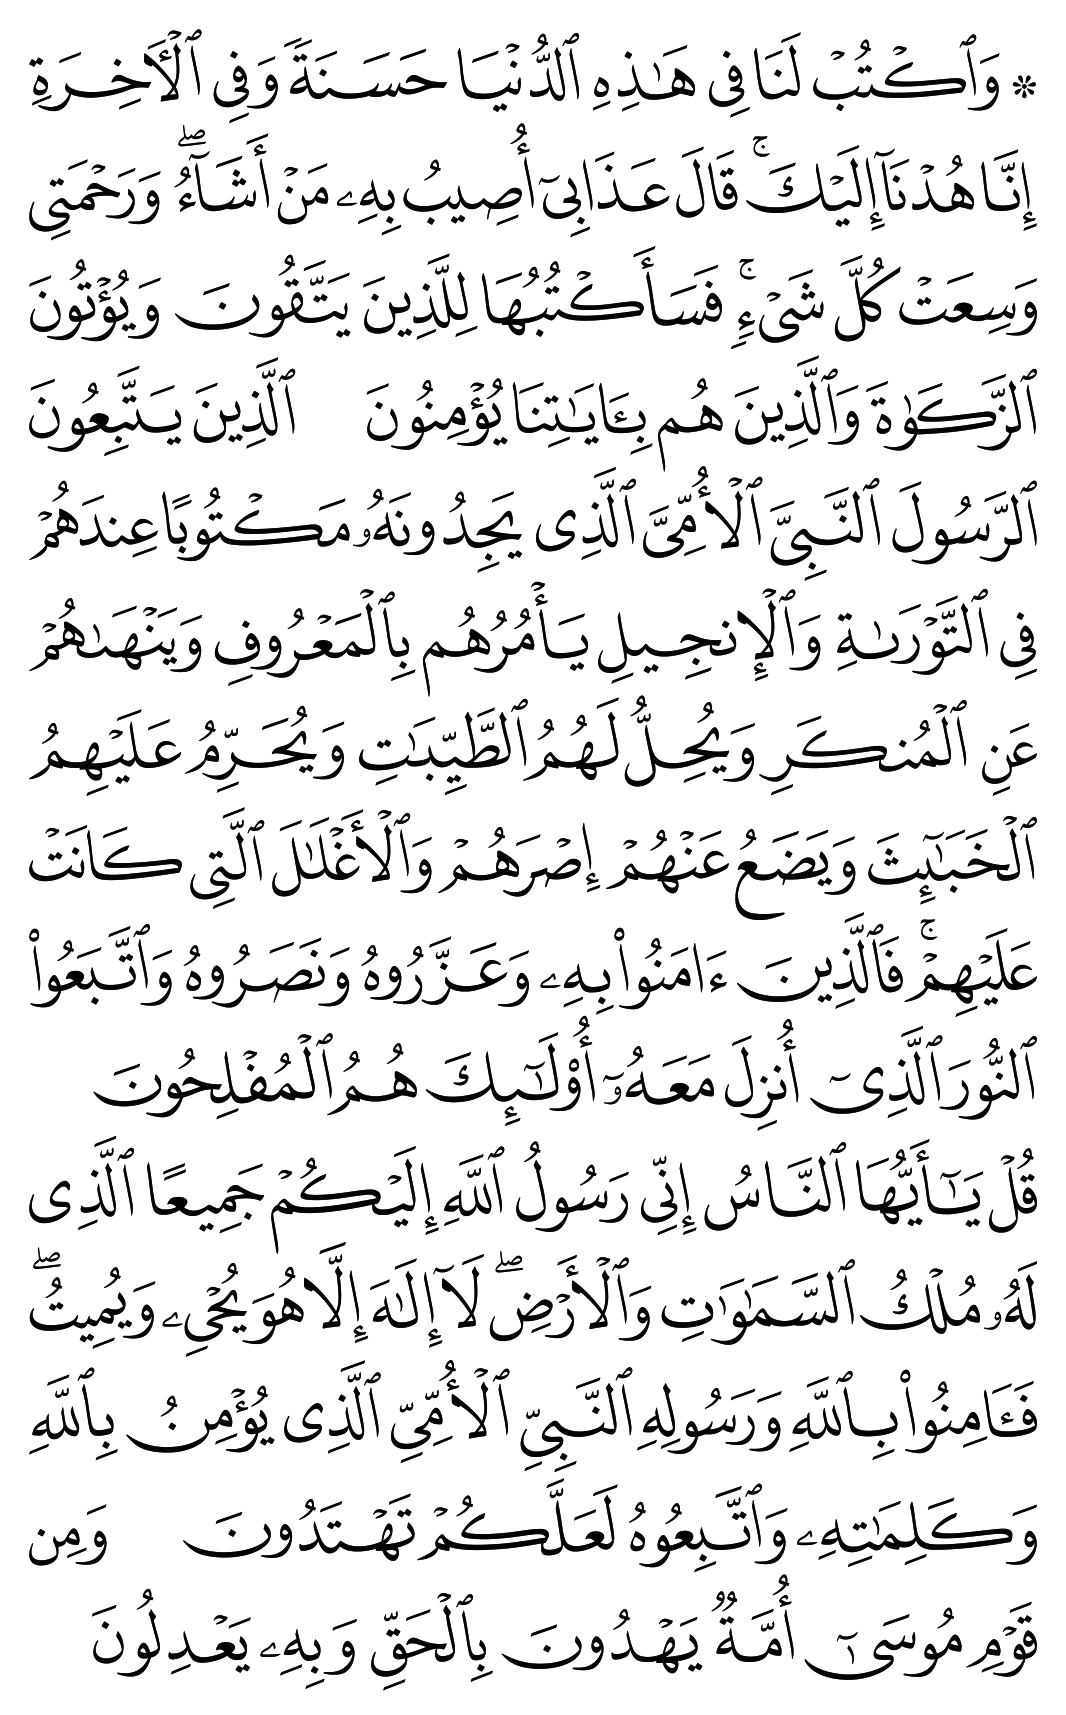 * وَٱكۡتُبۡ لَنَا فِی هَـٰذِهِ ٱلدُّنۡیَا حَسَنَةࣰ وَفِی ٱلۡأَخِرَةِ
إِنَّا هُدۡنَاۤ إِلَیۡكَۚ قَالَ عَذَابِیۤ أُصِیبُ بِهِۦ مَنۡ أَشَاۤءُۖ وَرَحۡمَتِی
وَسِعَتۡ كُلَّ شَیۡءࣲۚ فَسَأَكۡتُبُهَا لِلَّذِینَ یَتَّقُونَ وَیُؤۡتُونَ
ٱلزَّكَوٰةَ وَٱلَّذِینَ هُم بِـَٔایَـٰتِنَا یُؤۡمِنُونَ ٱلَّذِینَ یَتَّبِعُونَ
ٱلرَّسُولَ ٱلنَّبِیَّ ٱلۡأُمِّیَّ ٱلَّذِی یَجِدُونَهُۥ مَكۡتُوبًا عِندَهُمۡ
فِی ٱلتَّوۡرَىٰةِ وَٱلۡإِنجِیلِ یَأۡمُرُهُم بِٱلۡمَعۡرُوفِ وَیَنۡهَىٰهُمۡ
عَنِ ٱلۡمُنكَرِ وَیُحِلُّ لَهُمُ ٱلطَّیِّبَـٰتِ وَیُحَرِّمُ عَلَیۡهِمُ
ٱلۡخَبَـٰۤىِٕثَ وَیَضَعُ عَنۡهُمۡ إِصۡرَهُمۡ وَٱلۡأَغۡلَـٰلَ ٱلَّتِی كَانَتۡ
عَلَیۡهِمۡۚ فَٱلَّذِینَ ءَامَنُوا۟ بِهِۦ وَعَزَّرُوهُ وَنَصَرُوهُ وَٱتَّبَعُوا۟
ٱلنُّورَ ٱلَّذِیۤ أُنزِلَ مَعَهُۥۤ أُو۟لَـٰۤىِٕكَ هُمُ ٱلۡمُفۡلِحُونَ
قُلۡ یَـٰۤأَیُّهَا ٱلنَّاسُ إِنِّی رَسُولُ ٱللَّهِ إِلَیۡكُمۡ جَمِیعًا ٱلَّذِی
لَهُۥ مُلۡكُ ٱلسَّمَـٰوَ ٰ⁠تِ وَٱلۡأَرۡضِۖ لَاۤ إِلَـٰهَ إِلَّا هُوَ یُحۡیِۦ وَیُمِیتُۖ
فَـَٔامِنُوا۟ بِٱللَّهِ وَرَسُولِهِ ٱلنَّبِیِّ ٱلۡأُمِّیِّ ٱلَّذِی یُؤۡمِنُ بِٱللَّهِ
وَكَلِمَـٰتِهِۦ وَٱتَّبِعُوهُ لَعَلَّكُمۡ تَهۡتَدُونَ وَمِن
قَوۡمِ مُوسَىٰۤ أُمَّةࣱ یَهۡدُونَ بِٱلۡحَقِّ وَبِهِۦ یَعۡدِلُونَ